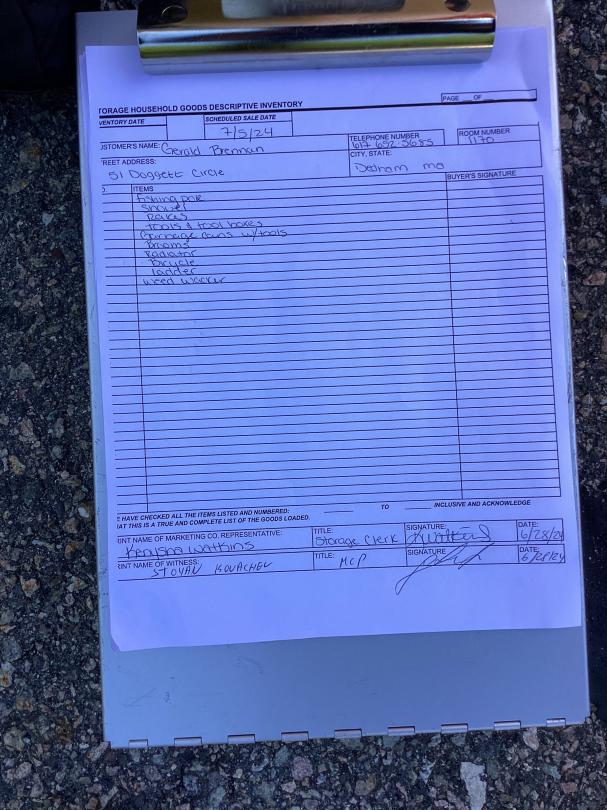 TORAGE HOUSEHOLD GOODS DESCRIPTIVE INVENTORY
PAGE __ OF __
VENTORY DATE
SCHEDULED SALE DATE
7/5/24
USTOMER'S NAME: Gerald Brennan
TELEPHONE NUMBER
617 692 5685
ROOM NUMBER
1170
REET ADDRESS:
51 Doggett Circle
CITY, STATE:
Dedham ma
O. ITEMS BUYER'S SIGNATURE
fishing pole
shovel
Rakes
tools & tool boxes
Garbage cans w/tools
Brooms
Radiator
Bicycle
ladder
weed wacker
E HAVE CHECKED ALL THE ITEMS LISTED AND NUMBERED: ____ TO ____ INCLUSIVE AND ACKNOWLEDGE
HAT THIS IS A TRUE AND COMPLETE LIST OF THE GOODS LOADED.
RINT NAME OF MARKETING CO. REPRESENTATIVE:
Kenysha Watkins
TITLE:
Storage Clerk
SIGNATURE:
KWatkins
DATE:
6/28/24
RINT NAME OF WITNESS:
STOYAN KOVACHEV
TITLE: MCP
SIGNATURE
DATE:
6/28/24